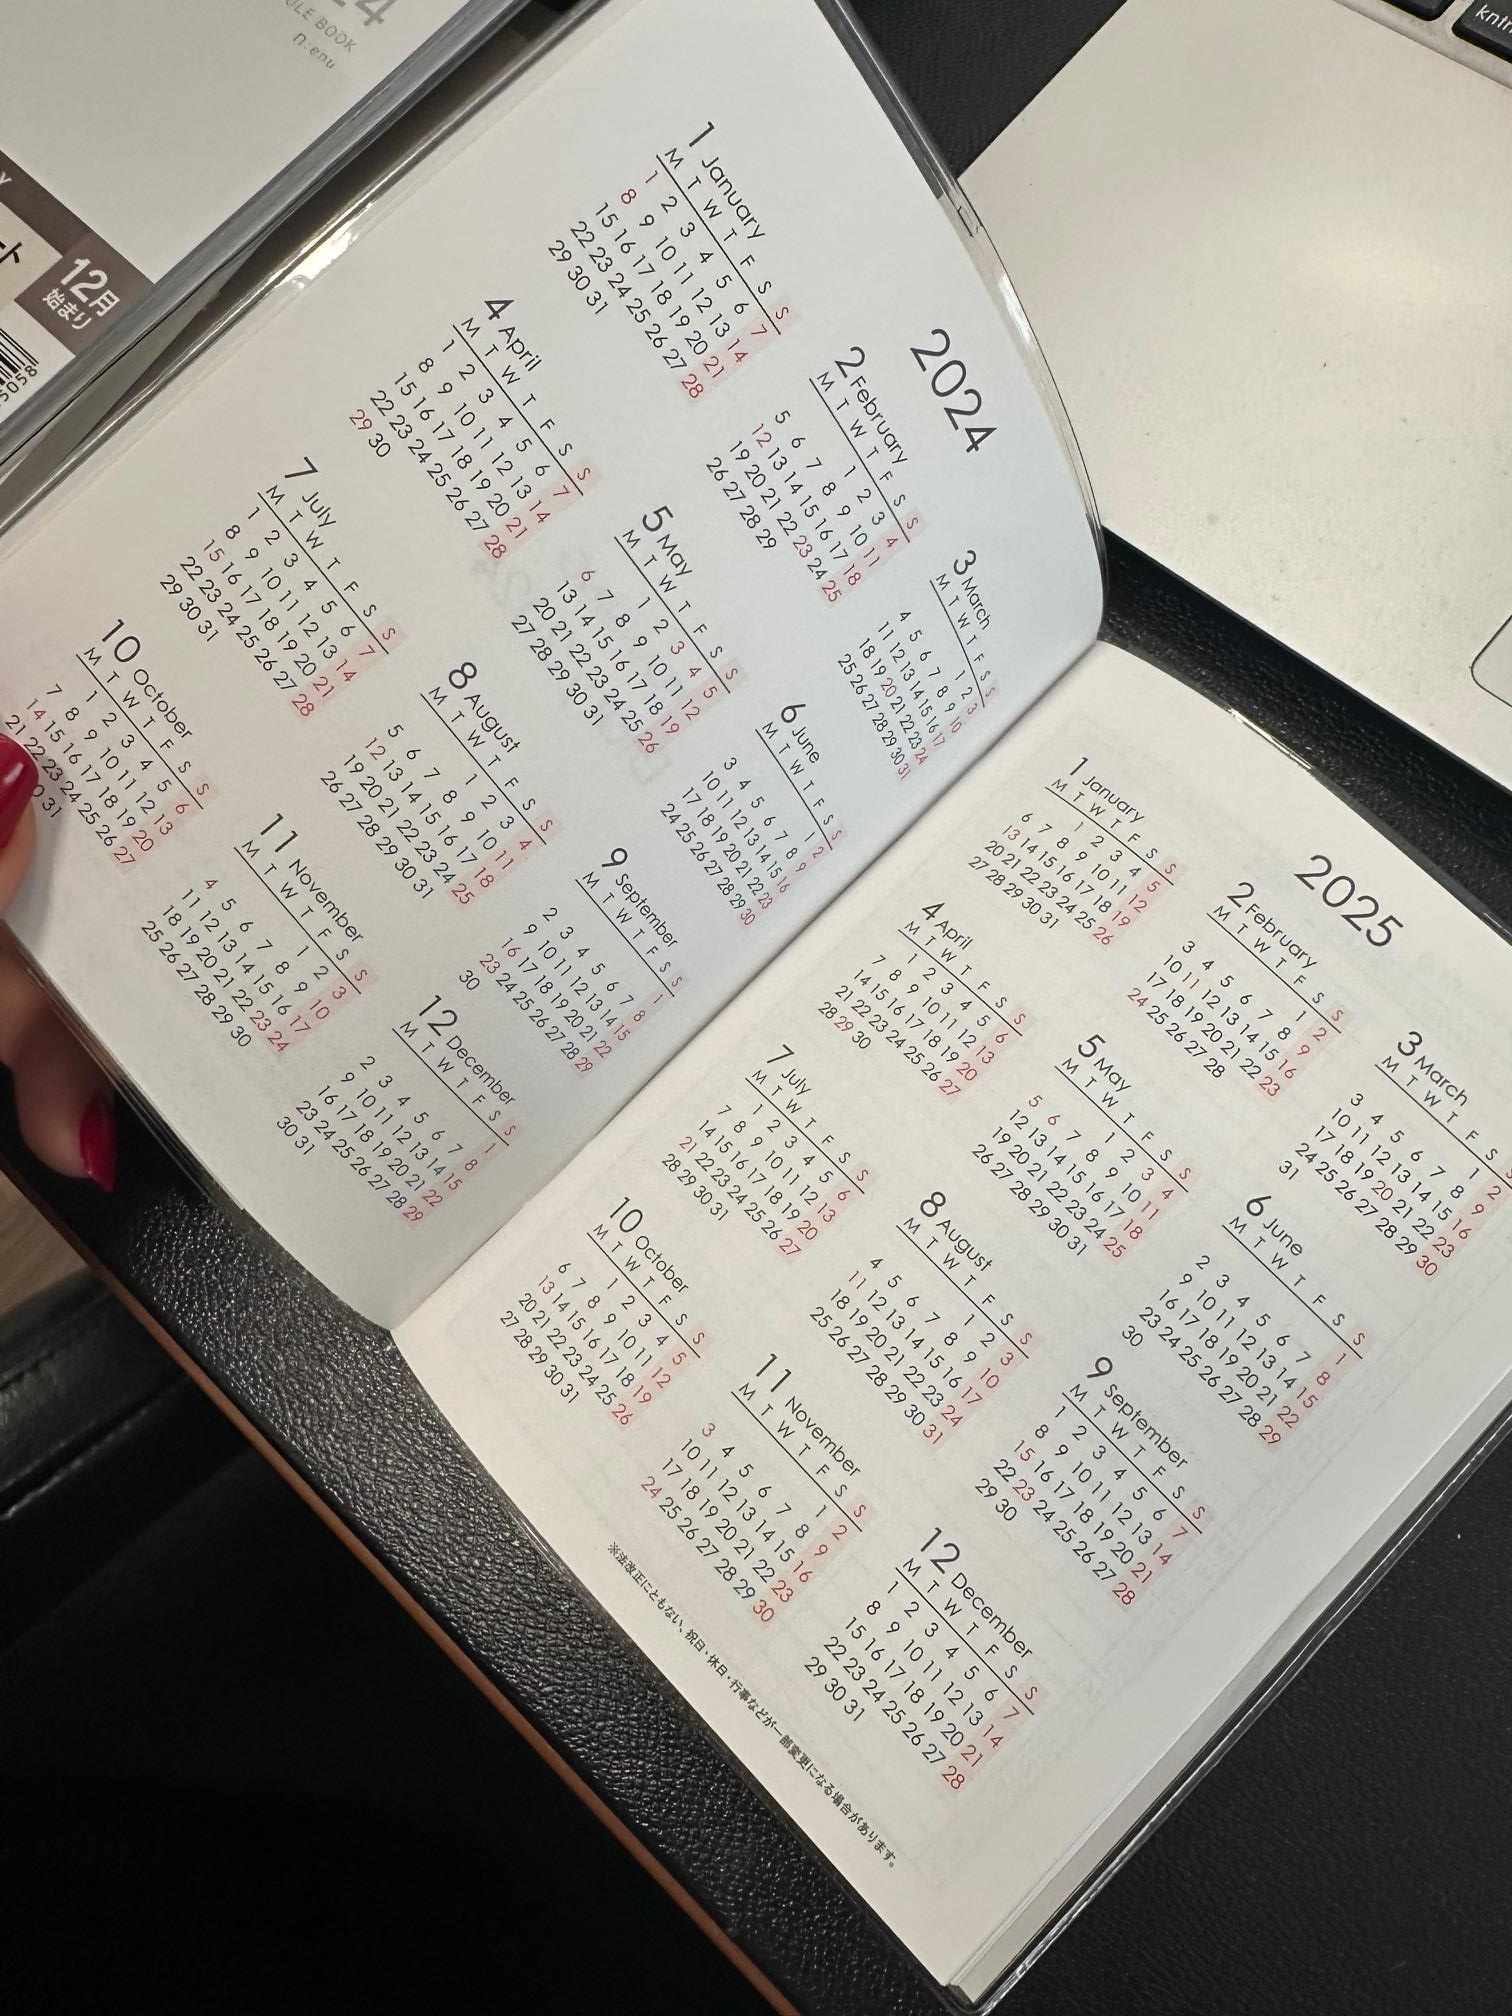 ULE BOOK
12月
始まり
5058
2024
1 January
M T W T F S S
1 2 3 4 5 6 7
8 9 10 11 12 13 14
15 16 17 18 19 20 21
22 23 24 25 26 27 28
29 30 31
2 February
M T W T F S S
1 2 3 4
5 6 7 8 9 10 11
12 13 14 15 16 17 18
19 20 21 22 23 24 25
26 27 28 29
3 March
M T W T F S S
1 2 3
4 5 6 7 8 9 10
11 12 13 14 15 16 17
18 19 20 21 22 23 24
25 26 27 28 29 30 31
4 April
M T W T F S S
1 2 3 4 5 6 7
8 9 10 11 12 13 14
15 16 17 18 19 20 21
22 23 24 25 26 27 28
29 30
5 May
M T W T F S S
1 2 3 4 5
6 7 8 9 10 11 12
13 14 15 16 17 18 19
20 21 22 23 24 25 26
27 28 29 30 31
6 June
M T W T F S S
1 2
3 4 5 6 7 8 9
10 11 12 13 14 15 16
17 18 19 20 21 22 23
24 25 26 27 28 29 30
7 July
M T W T F S S
1 2 3 4 5 6 7
8 9 10 11 12 13 14
15 16 17 18 19 20 21
22 23 24 25 26 27 28
29 30 31
8 August
M T W T F S S
1 2 3 4
5 6 7 8 9 10 11
12 13 14 15 16 17 18
19 20 21 22 23 24 25
26 27 28 29 30 31
9 September
M T W T F S S
1
2 3 4 5 6 7 8
9 10 11 12 13 14 15
16 17 18 19 20 21 22
23 24 25 26 27 28 29
30
10 October
M T W T F S S
1 2 3 4 5 6
7 8 9 10 11 12 13
14 15 16 17 18 19 20
21 22 23 24 25 26 27
30 31
11 November
M T W T F S S
1 2 3
4 5 6 7 8 9 10
11 12 13 14 15 16 17
18 19 20 21 22 23 24
25 26 27 28 29 30
12 December
M T W T F S S
1
2 3 4 5 6 7 8
9 10 11 12 13 14 15
16 17 18 19 20 21 22
23 24 25 26 27 28 29
30 31
2025
1 January
M T W T F S S
1 2 3 4 5
6 7 8 9 10 11 12
13 14 15 16 17 18 19
20 21 22 23 24 25 26
27 28 29 30 31
2 February
M T W T F S S
1 2
3 4 5 6 7 8 9
10 11 12 13 14 15 16
17 18 19 20 21 22 23
24 25 26 27 28
3 March
M T W T F S S
1 2
3 4 5 6 7 8 9
10 11 12 13 14 15 16
17 18 19 20 21 22 23
24 25 26 27 28 29 30
31
4 April
M T W T F S S
1 2 3 4 5 6
7 8 9 10 11 12 13
14 15 16 17 18 19 20
21 22 23 24 25 26 27
28 29 30
5 May
M T W T F S S
1 2 3 4
5 6 7 8 9 10 11
12 13 14 15 16 17 18
19 20 21 22 23 24 25
26 27 28 29 30 31
6 June
M T W T F S S
1
2 3 4 5 6 7 8
9 10 11 12 13 14 15
16 17 18 19 20 21 22
23 24 25 26 27 28 29
30
7 July
M T W T F S S
1 2 3 4 5 6
7 8 9 10 11 12 13
14 15 16 17 18 19 20
21 22 23 24 25 26 27
28 29 30 31
8 August
M T W T F S S
1 2 3
4 5 6 7 8 9 10
11 12 13 14 15 16 17
18 19 20 21 22 23 24
25 26 27 28 29 30 31
9 September
M T W T F S S
1 2 3 4 5 6 7
8 9 10 11 12 13 14
15 16 17 18 19 20 21
22 23 24 25 26 27 28
29 30
10 October
M T W T F S S
1 2 3 4 5
6 7 8 9 10 11 12
13 14 15 16 17 18 19
20 21 22 23 24 25 26
27 28 29 30 31
11 November
M T W T F S S
1 2
3 4 5 6 7 8 9
10 11 12 13 14 15 16
17 18 19 20 21 22 23
24 25 26 27 28 29 30
12 December
M T W T F S S
1 2 3 4 5 6 7
8 9 10 11 12 13 14
15 16 17 18 19 20 21
22 23 24 25 26 27 28
29 30 31
※法改正にともない、祝日・休日・行事などが一部変更になる場合があります。